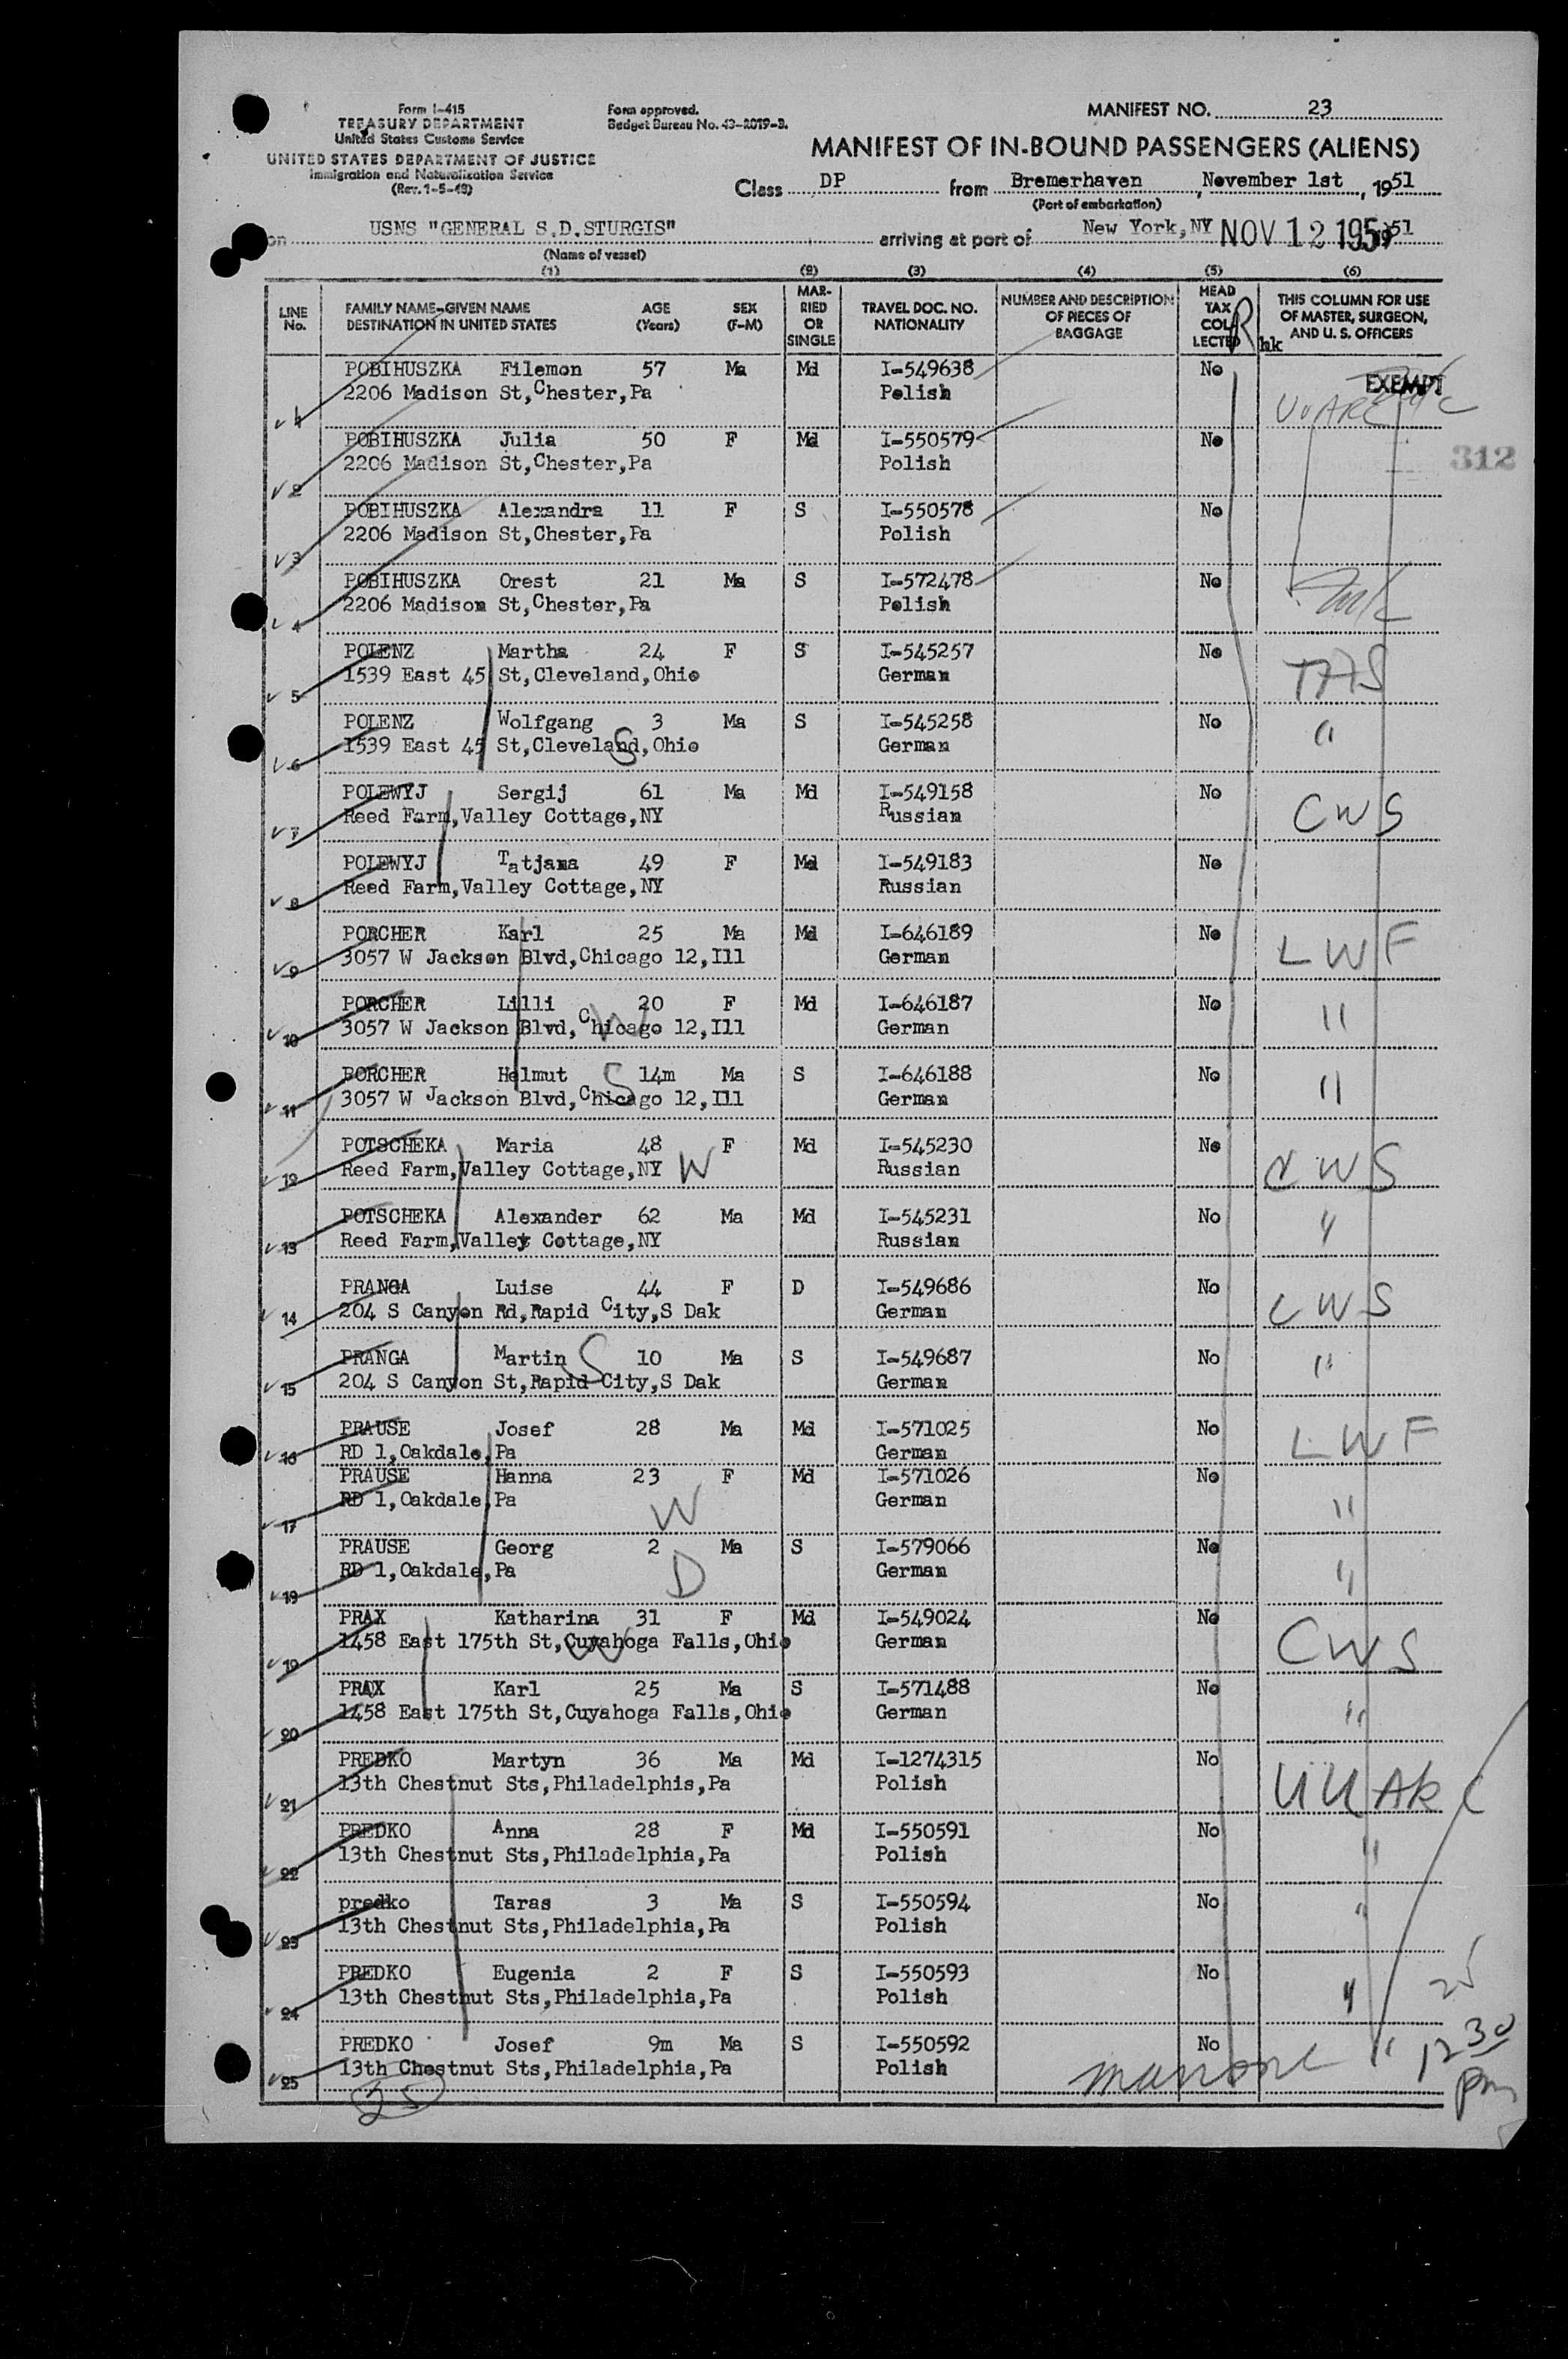 Form I-415
TREASURY DEPARTMENT
United States Customs Service
UNITED STATES DEPARTMENT OF JUSTICE
Immigration and Naturalization Service
(Rev. 1-5-49)
Form approved.
Budget Bureau No. 43-R019-3.
MANIFEST NO. 23
MANIFEST OF IN-BOUND PASSENGERS (ALIENS)
Class DP from Bremerhaven, November 1st, 1951
(Port of embarkation)
on USNS "GENERAL S.D.STURGIS" arriving at port of New York, NY NOV 12 195 1951
(Name of vessel)
(1) (2) (3) (4) (5) (6)
LINE No. FAMILY NAME-GIVEN NAME DESTINATION IN UNITED STATES AGE (Years) SEX (F-M) MARRIED OR SINGLE TRAVEL DOC. NO. NATIONALITY NUMBER AND DESCRIPTION OF PIECES OF BAGGAGE HEAD TAX COLLECTED THIS COLUMN FOR USE OF MASTER, SURGEON, AND U. S. OFFICERS
R hk
POBIHUSZKA Filemon 57 Ma Md I-549638 No EXEMPT
1 2206 Madison St,Chester,Pa Polish UUARC
POBIHUSZKA Julia 50 F Md I-550579 No
312
2 2206 Madison St,Chester,Pa Polish
POBIHUSZKA Alexandra 11 F S I-550578 No
3 2206 Madison St,Chester,Pa Polish
POBIHUSZKA Orest 21 Ma S I-572478 No
4 2206 Madison St,Chester,Pa Polish
POLENZ Martha 24 F S I-545257 No
5 1539 East 45 St,Cleveland,Ohio German
POLENZ Wolfgang 3 Ma S I-545258 No "
6 1539 East 45 St,Cleveland,Ohio German S
POLEWYJ Sergij 61 Ma Md I-549158 No CWS
7 Reed Farm,Valley Cottage,NY Russian
POLEWYJ Tatjana 49 F Md I-549183 No
8 Reed Farm,Valley Cottage,NY Russian
PORCHER Karl 25 Ma Md I-646189 No LWF
9 3057 W Jackson Blvd,Chicago 12,Ill German
PORCHER Lilli 20 F Md I-646187 No "
10 3057 W Jackson Blvd,Chicago 12,Ill German W
PORCHER Helmut S 14m Ma S I-646188 No "
11 3057 W Jackson Blvd,Chicago 12,Ill German
POTSCHEKA Maria 48 F Md I-545230 No CWS
12 Reed Farm,Valley Cottage,NY W Russian
POTSCHEKA Alexander 62 Ma Md I-545231 No "
13 Reed Farm,Valley Cottage,NY Russian
PRANGA Luise 44 F D I-549686 No CWS
14 204 S Canyon Rd,Rapid City,S Dak German
PRANGA Martin S 10 Ma S I-549687 No "
15 204 S Canyon St,Rapid City,S Dak German
PRAUSE Josef 28 Ma Md I-571025 No LWF
16 RD 1,Oakdale,Pa German
PRAUSE Hanna 23 F Md I-571026 No "
17 RD 1,Oakdale,Pa W German
PRAUSE Georg 2 Ma S I-579066 No "
18 RD 1,Oakdale,Pa D German
PRAX Katharina 31 F Md I-549024 No CWS
19 1458 East 175th St,Cuyahoga Falls,Ohio W German
PRAX Karl 25 Ma S I-571488 No "
20 1458 East 175th St,Cuyahoga Falls,Ohio German
PREDKO Martyn 36 Ma Md I-1274315 No UUARC
21 13th Chestnut Sts,Philadelphis,Pa Polish
PREDKO Anna 28 F Md I-550591 No "
22 13th Chestnut Sts,Philadelphia,Pa Polish
predko Taras 3 Ma S I-550594 No "
23 13th Chestnut Sts,Philadelphia,Pa Polish
PREDKO Eugenia 2 F S I-550593 No " 25
24 13th Chestnut Sts,Philadelphia,Pa Polish
PREDKO Josef 9m Ma S I-550592 No " 12 30 pm
25 13th Chestnut Sts,Philadelphia,Pa Polish
25